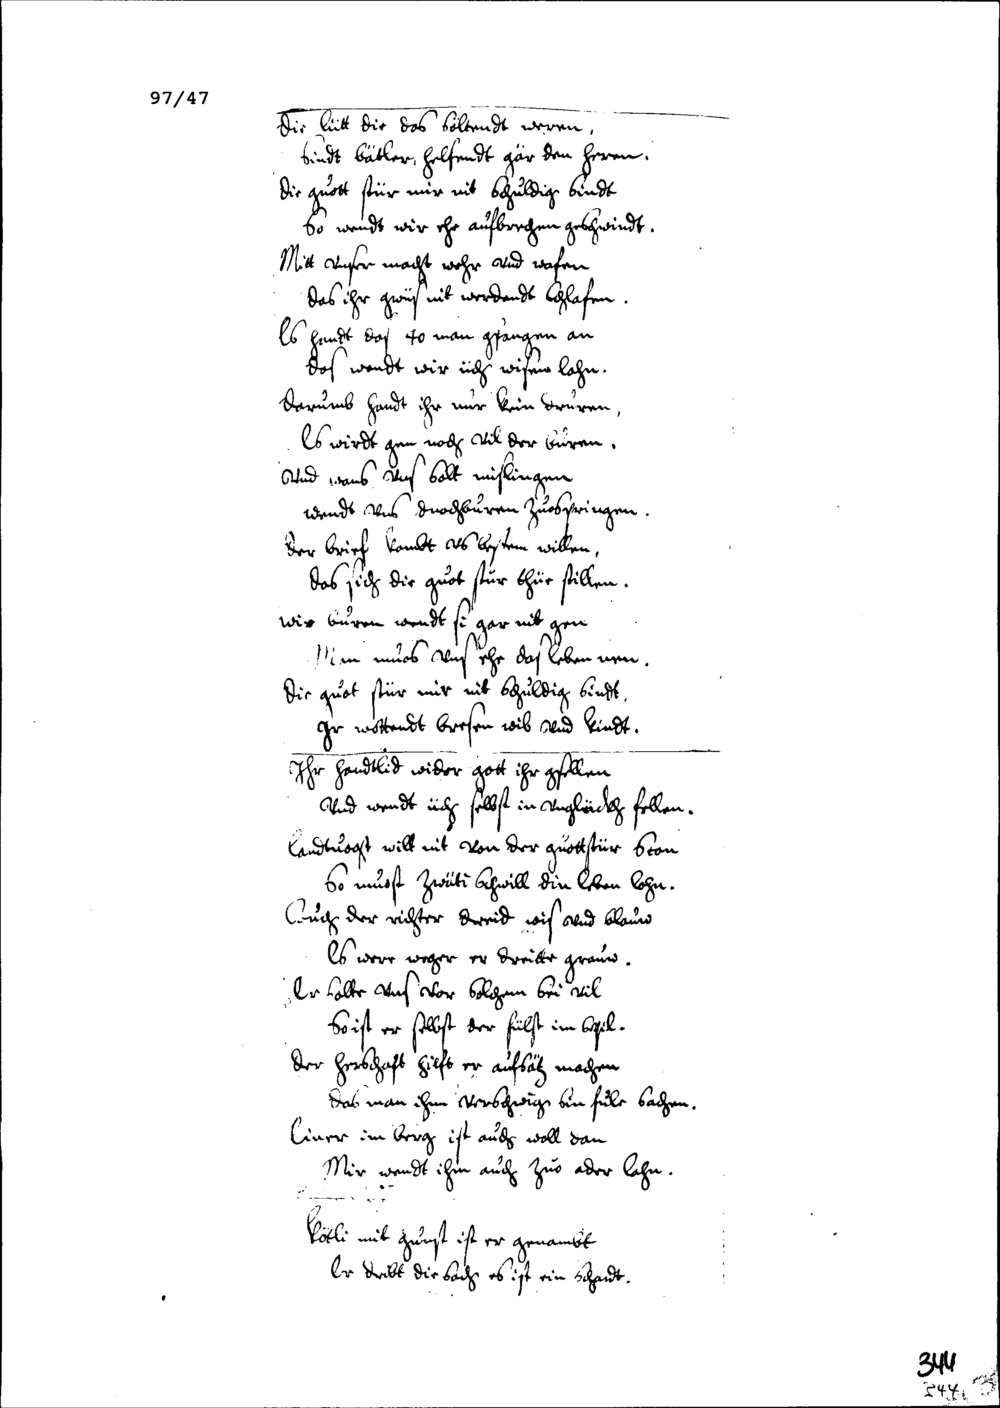 97/47
die lütt die das söltendt weren,
sindt bätler, helfendt gär den heren.
die guott stür mir nit schuldig sindt
So wendt wir ehe aufbrechen geschwindt.
Mitt unser macht wehr und wafen
das ihr gwüs nit werdendt schlafen.
Es handt das 40 man gfangen an
das wendt wir üch wisen lahn.
darumb handt ihr nur kein druren,
Es wirdt gen noch vil der buren.
Und wans uns solt mislingen
wendt uns dnochburen zuospringen.
der brief kombt us bestem willen,
das sich die guot stür thüe stillen.
wir buren wendt si gar nit gen
Man muos uns ehe das leben nen.
die guot stür mir nit schuldig sindt,
Ihr handtlid wider gott ihr gsellen
und wendt üch selbst in unglückh fellen.
landtuogt will nit von der guottstür ston
So muost zwüti schwill din leben lohn.
Auch der richter dreid wis und blauw
Es were weger er dreitte grauw.
Er solte uns vor solchem sei vil
So ist er selbst der fülst im spil.
der herschaft hilft er aufsätz machen
das man ihm verschwig sin fule sachen.
Einer im berg ist auch woll dan
Mir wendt ihm auch zuo ader lahn.
Kötli mit gunst ist er genambt
Er dribt die sach es ist ein schandt.
344
344